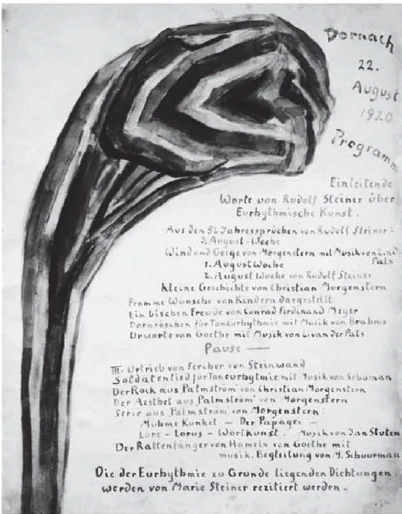 Dornach
22.
August
1920
Programm
Einleitende
Worte von Rudolf Steiner über
Eurhythmische Kunst.
Aus den 52 Jahressprüchen von Rudolf Steiner:
3. August-Woche
Wind und Geige von Morgenstern mit Musik von
Pals
1. August Woche
2. August Woche von Rudolf Steiner
Kleine Geschichte von Christian Morgenstern
Fromme Wünsche von Kindern dargestellt
Ein bischen Freude von Conrad Ferdinand Meyer
Dornröschen für Toneurhythmie mit Musik von Brahms
Urworte von Goethe mit Musik v. L. van der Pals
Pause —
III. Urtrieb von Fercher von Steinwand
Soldatenlied für Toneurhytmie mit Musik von Schuman
Der Rock aus Palmström von Christian Morgenstern
Der Aesthet aus Palmström von Morgenstern
Serie aus Palmström von Morgenstern:
Muhme Kunkel — Der Papagei —
Lore — Lorus — Wortkunst. Musik von Jan Stuten
Der Rattenfänger von Hameln von Goethe mit
musik. Begleitung von M. Schuurman
Die der Eurhythmie zu Grunde liegenden Dichtungen
werden von Marie Steiner rezitiert werden.